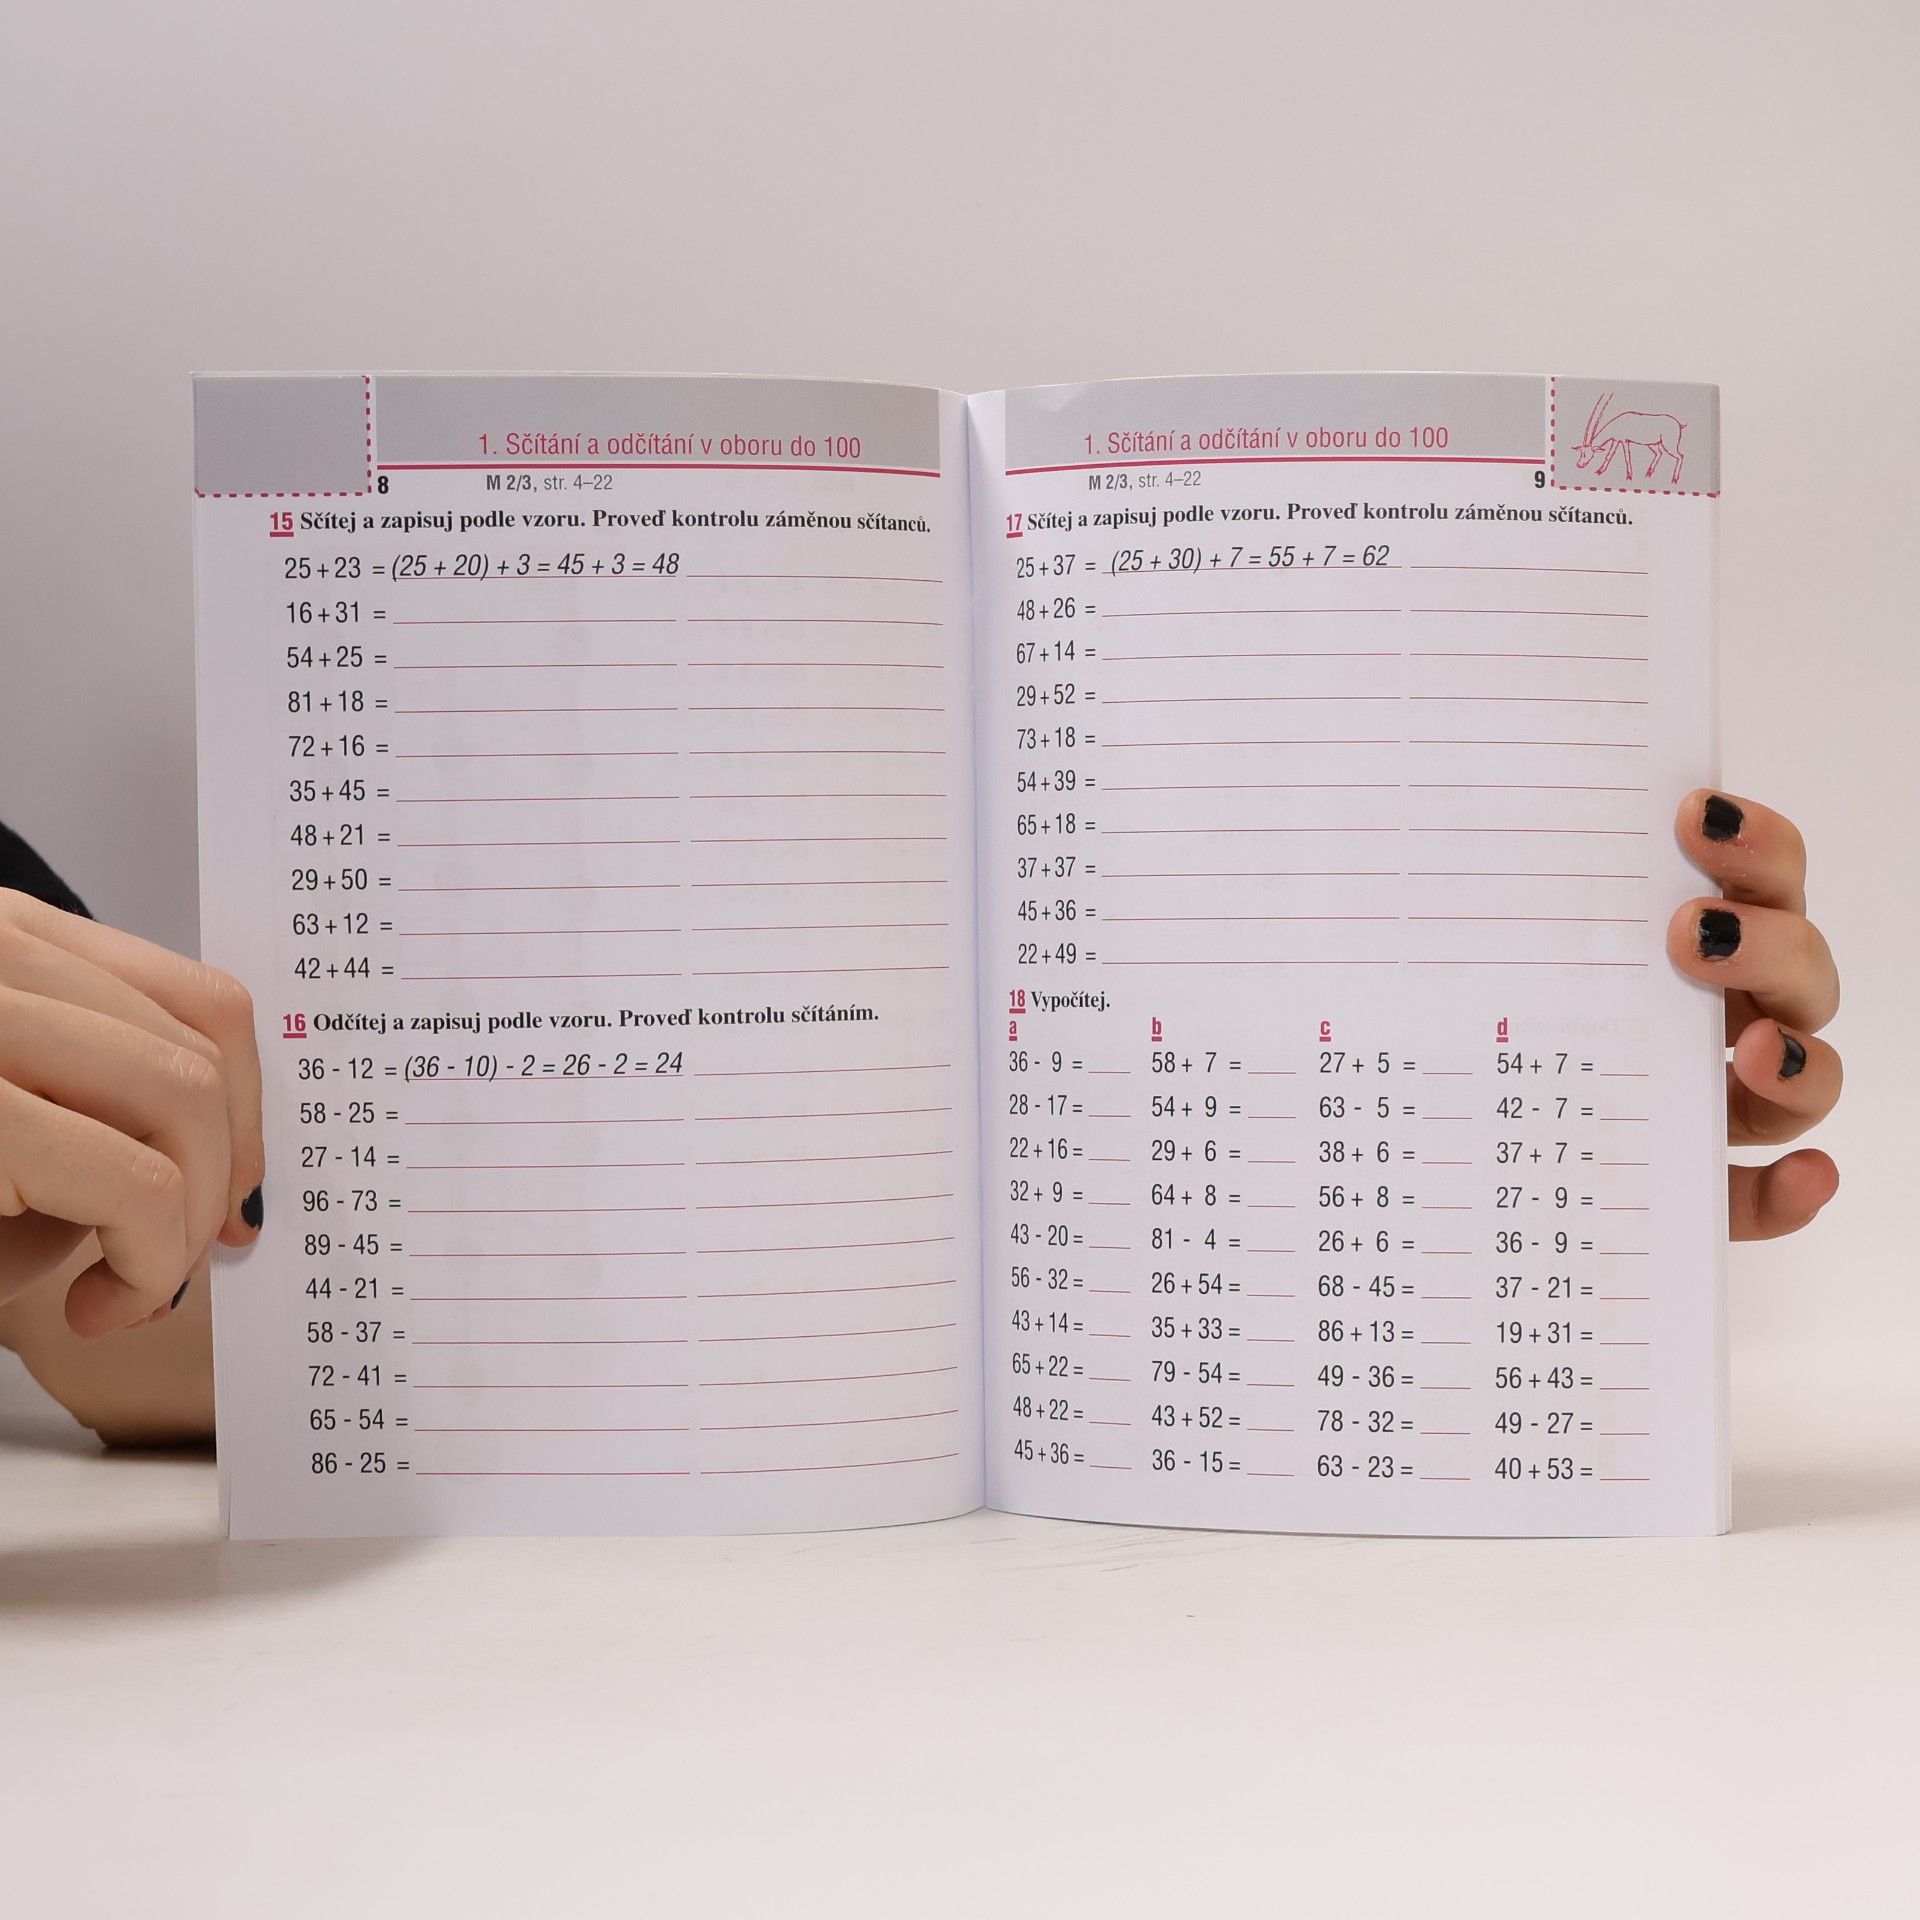 1. Sčítání a odčítání v oboru do 100
8 M 2/3, str. 4–22
15 Sčítej a zapisuj podle vzoru. Proveď kontrolu záměnou sčítanců.
25 + 23 = (25 + 20) + 3 = 45 + 3 = 48
16 + 31 =
54 + 25 =
81 + 18 =
72 + 16 =
35 + 45 =
48 + 21 =
29 + 50 =
63 + 12 =
42 + 44 =
16 Odčítej a zapisuj podle vzoru. Proveď kontrolu sčítáním.
36 - 12 = (36 - 10) - 2 = 26 - 2 = 24
58 - 25 =
27 - 14 =
96 - 73 =
89 - 45 =
44 - 21 =
58 - 37 =
72 - 41 =
65 - 54 =
86 - 25 =
1. Sčítání a odčítání v oboru do 100
M 2/3, str. 4–22 9
17 Sčítej a zapisuj podle vzoru. Proveď kontrolu záměnou sčítanců.
25 + 37 = (25 + 30) + 7 = 55 + 7 = 62
48 + 26 =
67 + 14 =
29 + 52 =
73 + 18 =
54 + 39 =
65 + 18 =
37 + 37 =
45 + 36 =
22 + 49 =
18 Vypočítej.
a b c d
36 - 9 = 58 + 7 = 27 + 5 = 54 + 7 =
28 - 17 = 54 + 9 = 63 - 5 = 42 - 7 =
22 + 16 = 29 + 6 = 38 + 6 = 37 + 7 =
32 + 9 = 64 + 8 = 56 + 8 = 27 - 9 =
43 - 20 = 81 - 4 = 26 + 6 = 36 - 9 =
56 - 32 = 26 + 54 = 68 - 45 = 37 - 21 =
43 + 14 = 35 + 33 = 86 + 13 = 19 + 31 =
65 + 22 = 79 - 54 = 49 - 36 = 56 + 43 =
48 + 22 = 43 + 52 = 78 - 32 = 49 - 27 =
45 + 36 = 36 - 15 = 63 - 23 = 40 + 53 =